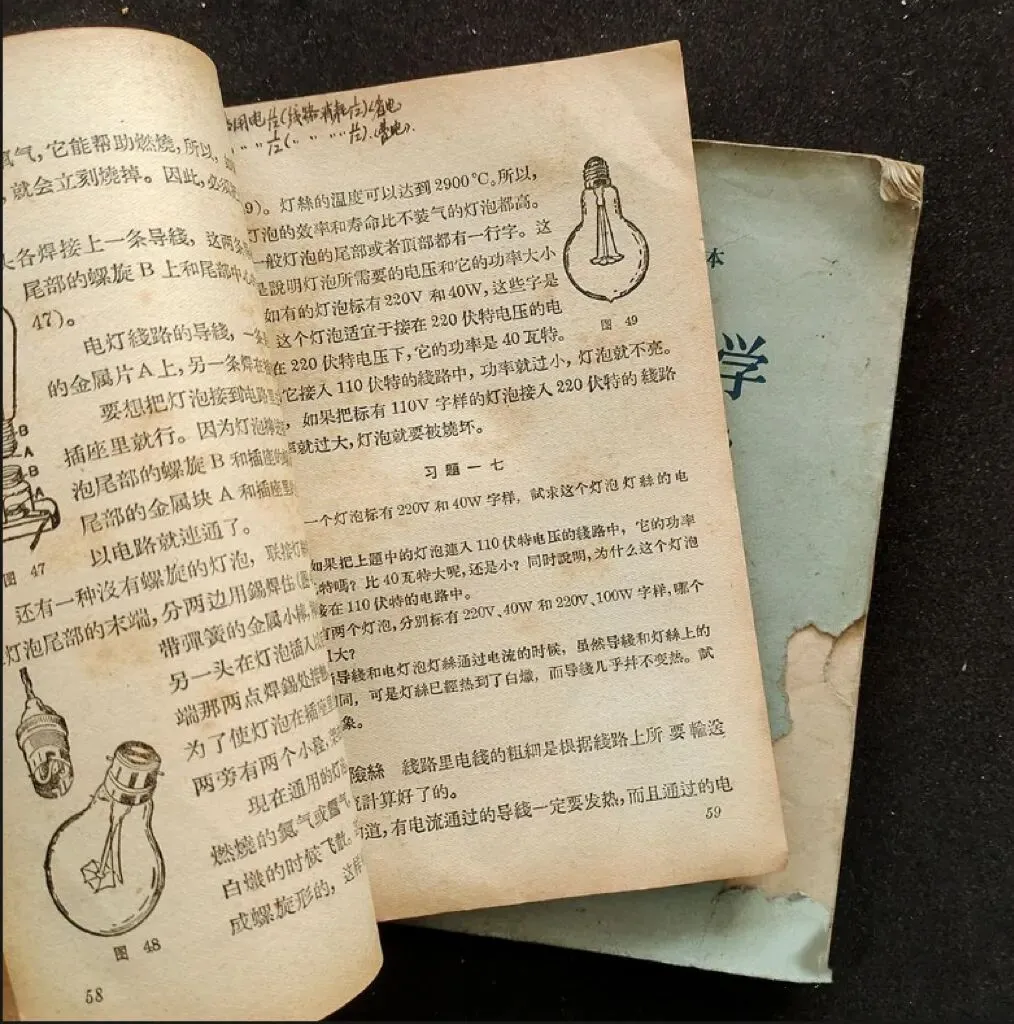 氮气,它能帮助燃烧,所以,
,就会立刻燒掉。因此,必须
头各焊接上一条导綫,这两条
尾部的螺旋B上和尾部中心
47)。
电灯綫路的导綫,一条
的金属片A上,另一条焊在
要想把灯泡接到电路里
插座里就行。因为灯泡
泡尾部的螺旋B和插座的
尾部的金属块A和插座里
以电路就連通了。
B
A
B
A
图 47
还有一种沒有螺旋的灯泡,联接灯
灯泡尾部的末端,分两边用錫焊住(图
带彈簧的金属小棒,
另一头在灯泡插入
端那两点焊錫处接触
为了使灯泡在插座里
两旁有两个小栓,
现在通用的灯
燃燒的氮气或氬气,
白熾的时候飞散。
成螺旋形的,这样
图 48
58
用电压(线路消耗压)
〃 〃 压(〃 〃 〃 〃 压)
9)。灯絲的温度可以达到2900°C。所以,
灯泡的效率和寿命比不装气的灯泡都高。
一般灯泡的尾部或者頂部都有一行字。这
是說明灯泡所需要的电压和它的功率大小
如有的灯泡标有220V 和40W,这些字是
这个灯泡适宜于接在 220 伏特电压的电
在 220 伏特电压下,它的功率是 40 瓦特。
它接入 110 伏特的綫路中,功率就过小,灯泡就不亮。
如果把标有 110V 字样的灯泡接入 220 伏特的 綫路
就过大,灯泡就要被燒坏。
图 49
习題一七
一个灯泡标有 220V 和 40W 字样,試求这个灯泡 灯 絲 的 电
如果把上題中的灯泡連入 110 伏特电压的綫路中,它的功率
特嗎?比 40 瓦特大呢,还是小?同时說明,为什么这个灯泡
接在 110 伏特的电路中。
有两个灯泡,分别标有 220V、40W 和 220V、100W 字样,哪个
大?
导綫和电灯泡灯絲通过电流的时候,虽然导綫和灯絲上的
同,可是灯絲已經热到了白熾,而导綫几乎并不变热。試
象。
險絲 綫路里电綫的粗細是根据綫路上所 要 輸送
計算好了的。
道,有电流通过的导綫一定要发热,而且通过的电
59
本
学